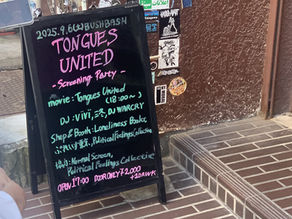 2025.9.6(土)BUSHBASH
TONGUES
UNITED
- Screening Party -
movie: Tongues United
(18:00~)
DJ: ViVi, DJ WARCRY
Shop & Booth: Loneliness Books,
Political Feelings Collective
協力: Normal Screen,
Political Feelings Collective
OPEN 17:00 DOOR ONLY ¥2,000
+1DRINK